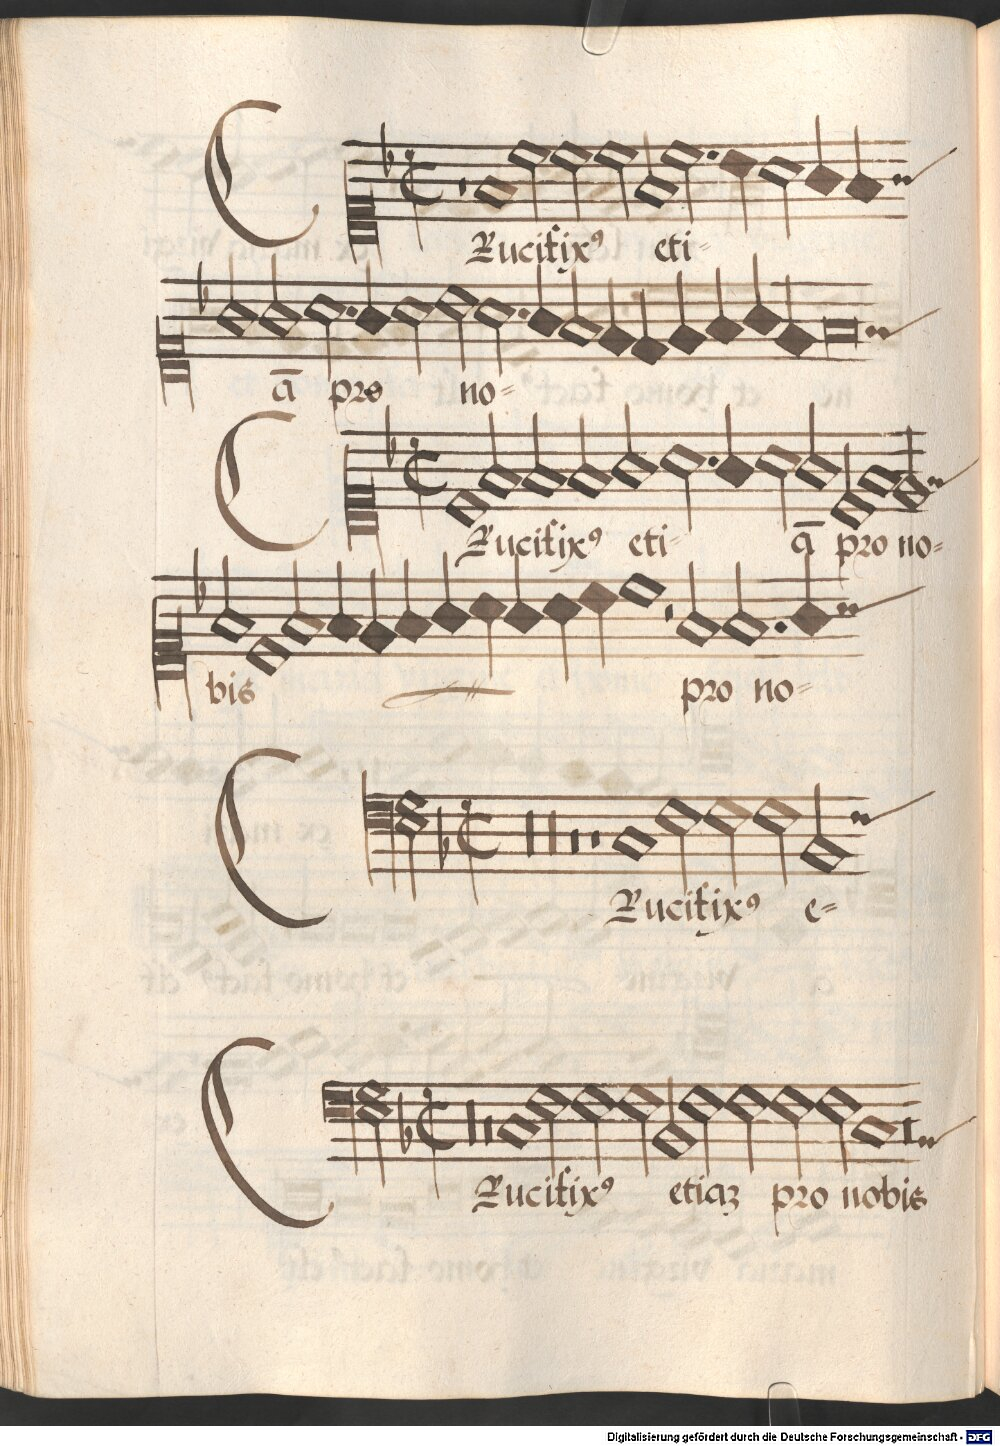 CRucifix⁹ eti=
ā pro no=
CRucifix⁹ eti= ā pro no=
bis pro no=
CRucifix⁹ e=
CRucifix⁹ etiaʒ pro nobis
Digitalisierung gefördert durch die Deutsche Forschungsgemeinschaft - DFG